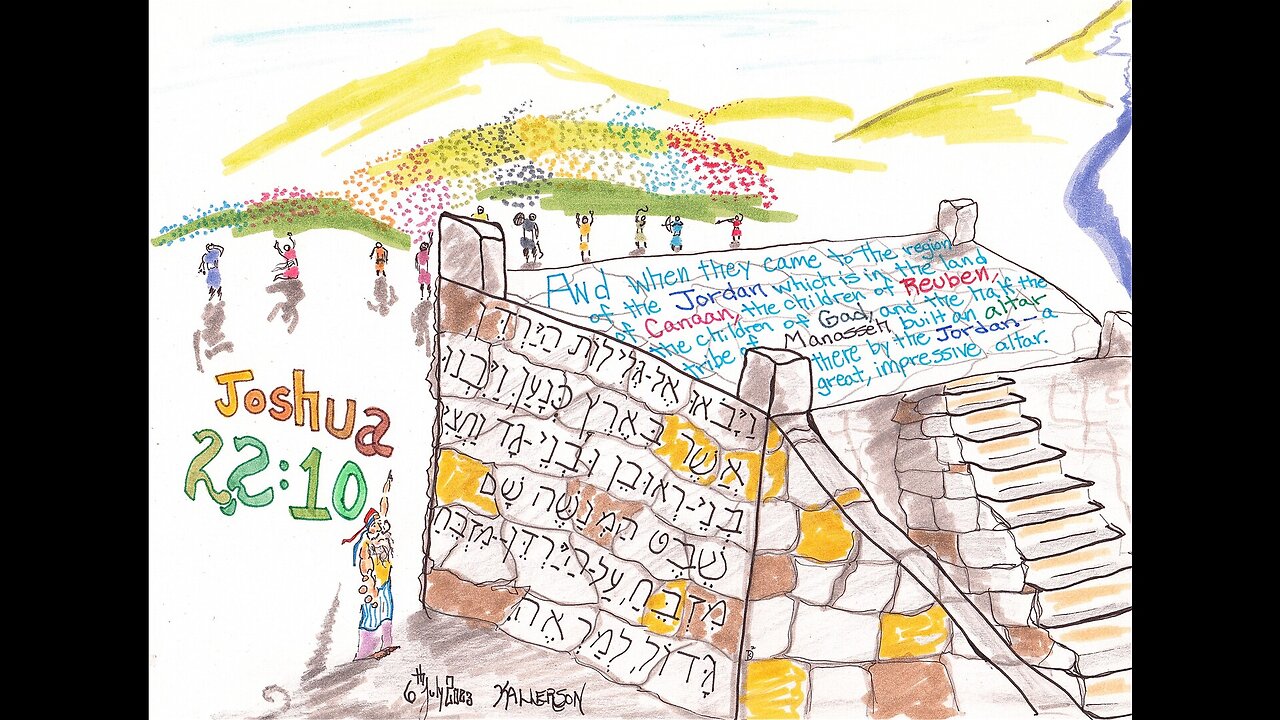 And when they came to the region
of the Jordan which is in the land
of Canaan, the children of Reuben,
the children of Gad, and the half the
tribe of Manasseh built an altar
there by the Jordan - a
great, impressive altar.
וַיָּבֹאוּ אֶל-גְּלִילוֹת הַיַּרְדֵּן
אֲשֶׁר בְּאֶרֶץ כְּנָעַן וַיִּבְנוּ
בְנֵי-רְאוּבֵן וּבְנֵי-גָד וַחֲצִי
שֵׁבֶט הַמְנַשֶּׁה שָׁם
מִזְבֵּחַ עַל-הַיַּרְדֵּן-מִזְבֵּחַ
גָּדוֹל לְמַרְאֶה
Joshua
22:10
6th July 2023 KALLERSON